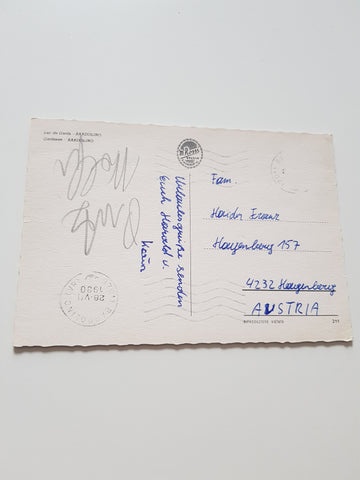 Lac de Garda - BARDOLINO
Gardasee - BARDOLINO
Urlaubsgrüße senden
Euch Harald u.
Karin
Fam.
Haider Franz
Hagenberg 157
4232 Hagenberg
AUSTRIA
26.VII
1990
RIPRODUZIONE VIETATA
211